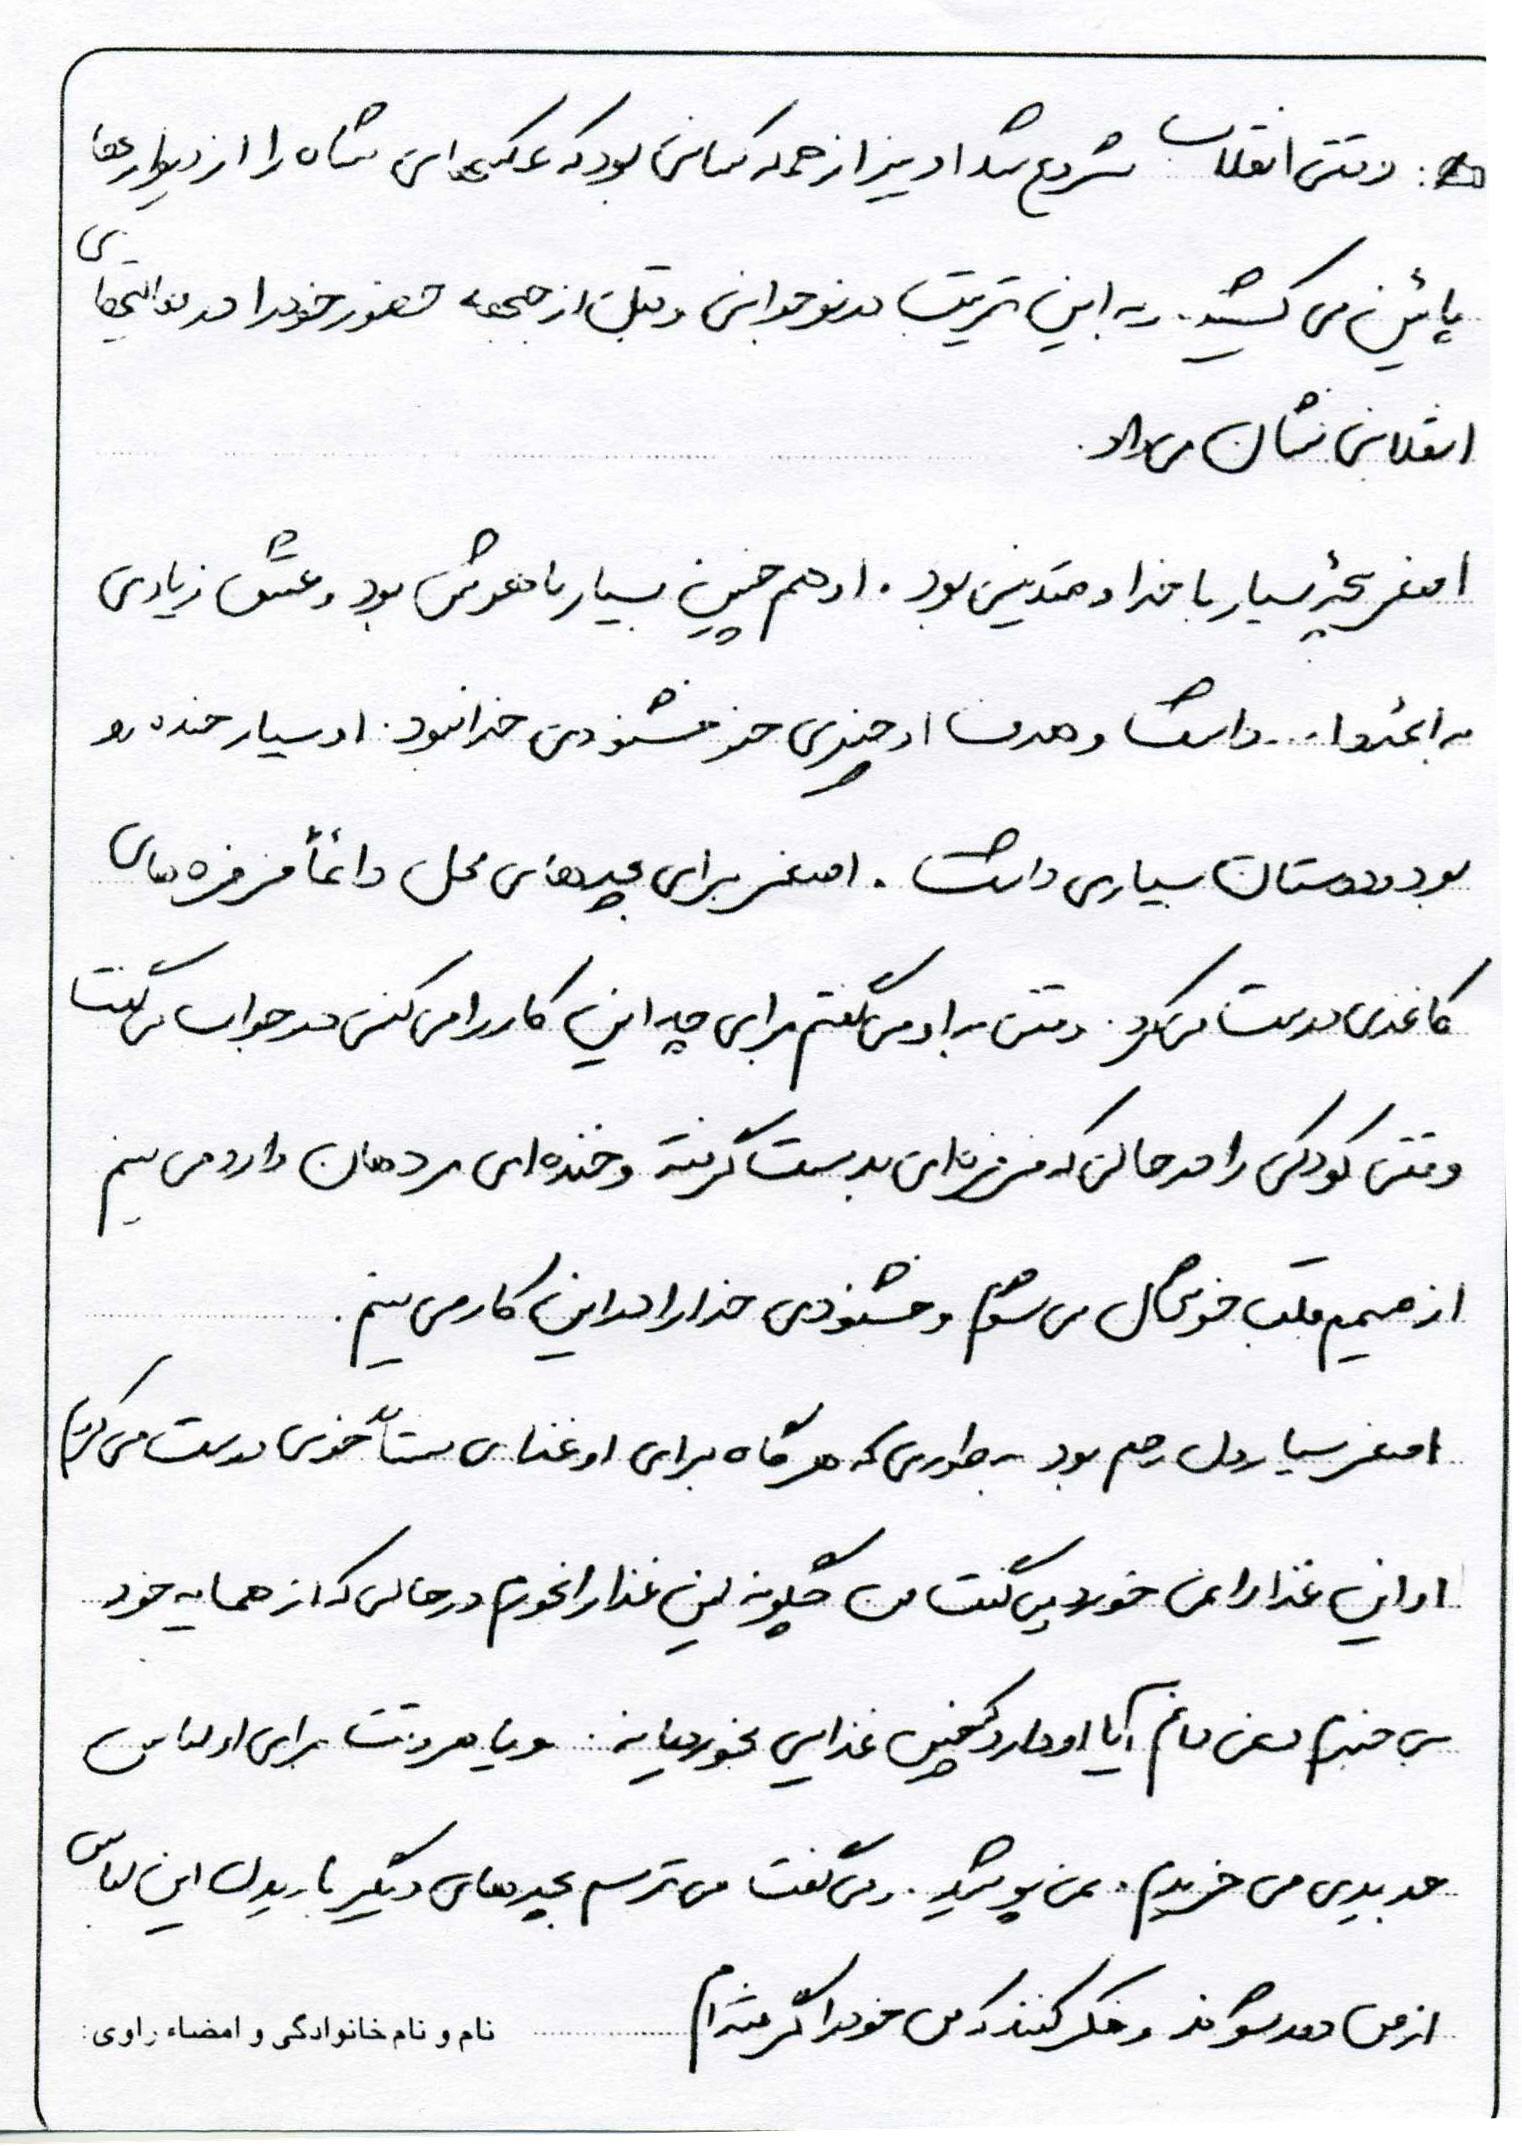 وقتی انقلاب شروع شد او نیز از جمله کسانی بود که عکسهای شاه را از دیوارها
پائین می کشید. و به این ترتیب در نوجوانی و قبل از جبهه حضور خود را در فعالیتهای
انقلابی نشان می داد.
اصغر بچه بسیار با خدا و متدینی بود. او هم چنین بسیار باهوش بود و عشق زیادی
به ائمه و ... داشت و هدف او چیزی جز خشنودی خدا نبود. او بسیار خنده رو
بود و دوستان بسیاری داشت. اصغر برای بچه های محل دائماً فرفره های
کاغذی درست می کرد. وقتی به او می گفتم برای چه این کار را می کنی در جواب می گفت
وقتی کودکی را در حالی که فرفره ای بدست گرفته و خنده ای بر دهان دارد می بینم
از صمیم قلب خوشحال می شوم و خشنودی خدا را در این کار می بینم.
اصغر بسیار دل رحم بود به طوری که هر گاه برای او غذای نسبتاً خوبی درست می کردم
او این غذا را نمی خورد و می گفت من چگونه این غذا را بخورم در حالی که از همسایه خود
بی خبرم و نمی دانم آیا او دارد که چنین غذایی بخورد یا نه. و یا هر وقت برای او لباس
جدیدی می خریدم. نمی پوشید. و می گفت می ترسم بچه های دیگر با دیدن این لباس
از من دور شوند و فکر کنند که من خود را گرفته ام
نام و نام خانوادگی و امضاء راوی: